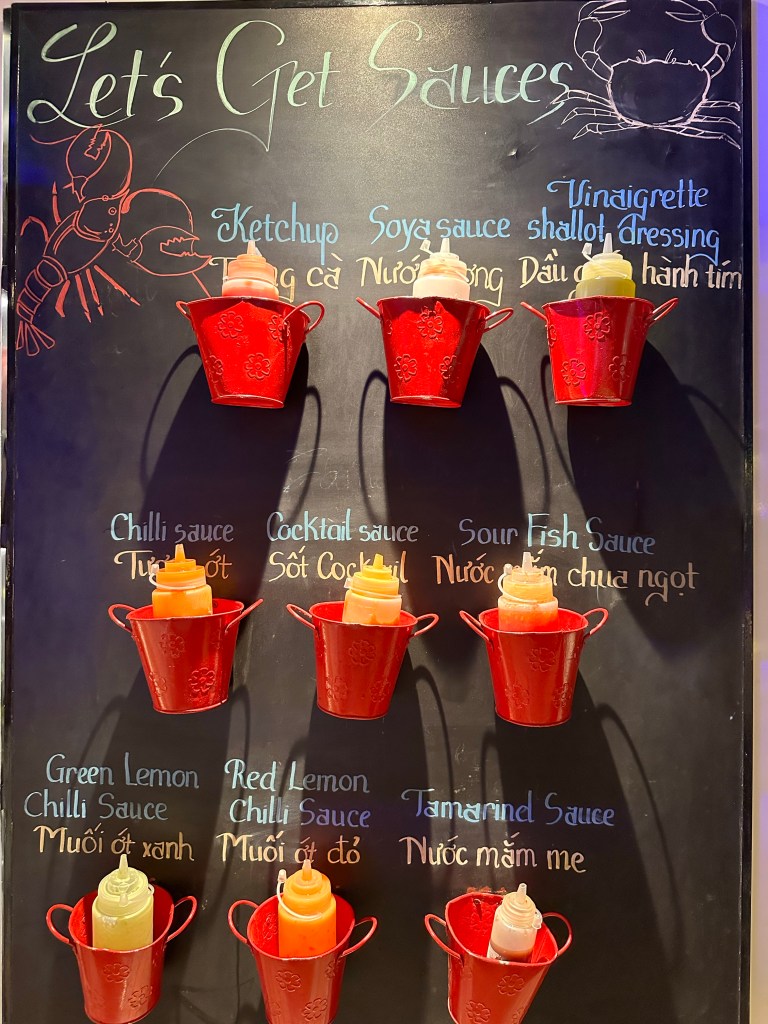 Let's Get Sauces
Ketchup
cà
Soya sauce
Nước
Vinaigrette
shallot dressing
Dầu hành tím
Chilli sauce
ớt
Cocktail sauce
Sốt Cocktail
Sour Fish Sauce
Nước mắm chua ngọt
Green Lemon
Chilli Sauce
Muối ớt xanh
Red Lemon
Chilli Sauce
Muối ớt đỏ
Tamarind Sauce
Nước mắm me